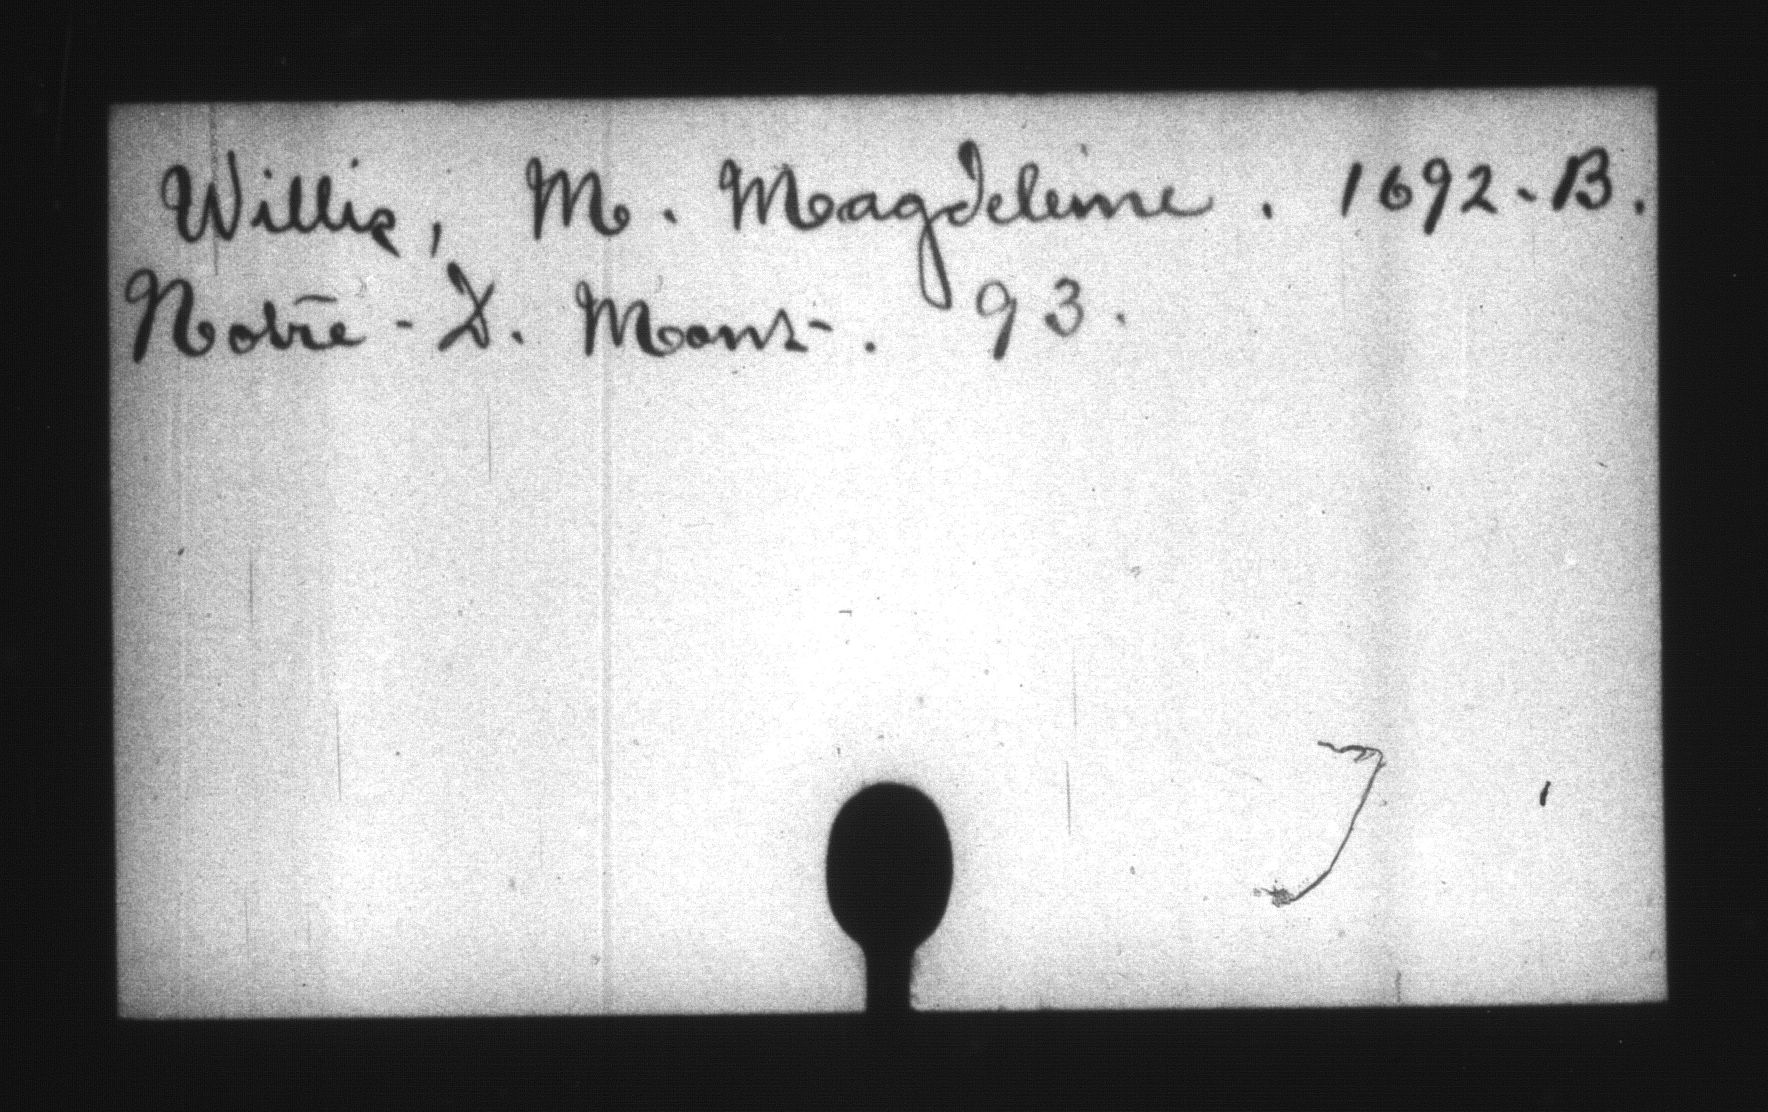 Willis, M. Magdeleine. 1692-B.
Notre-D. Mont-. 93.